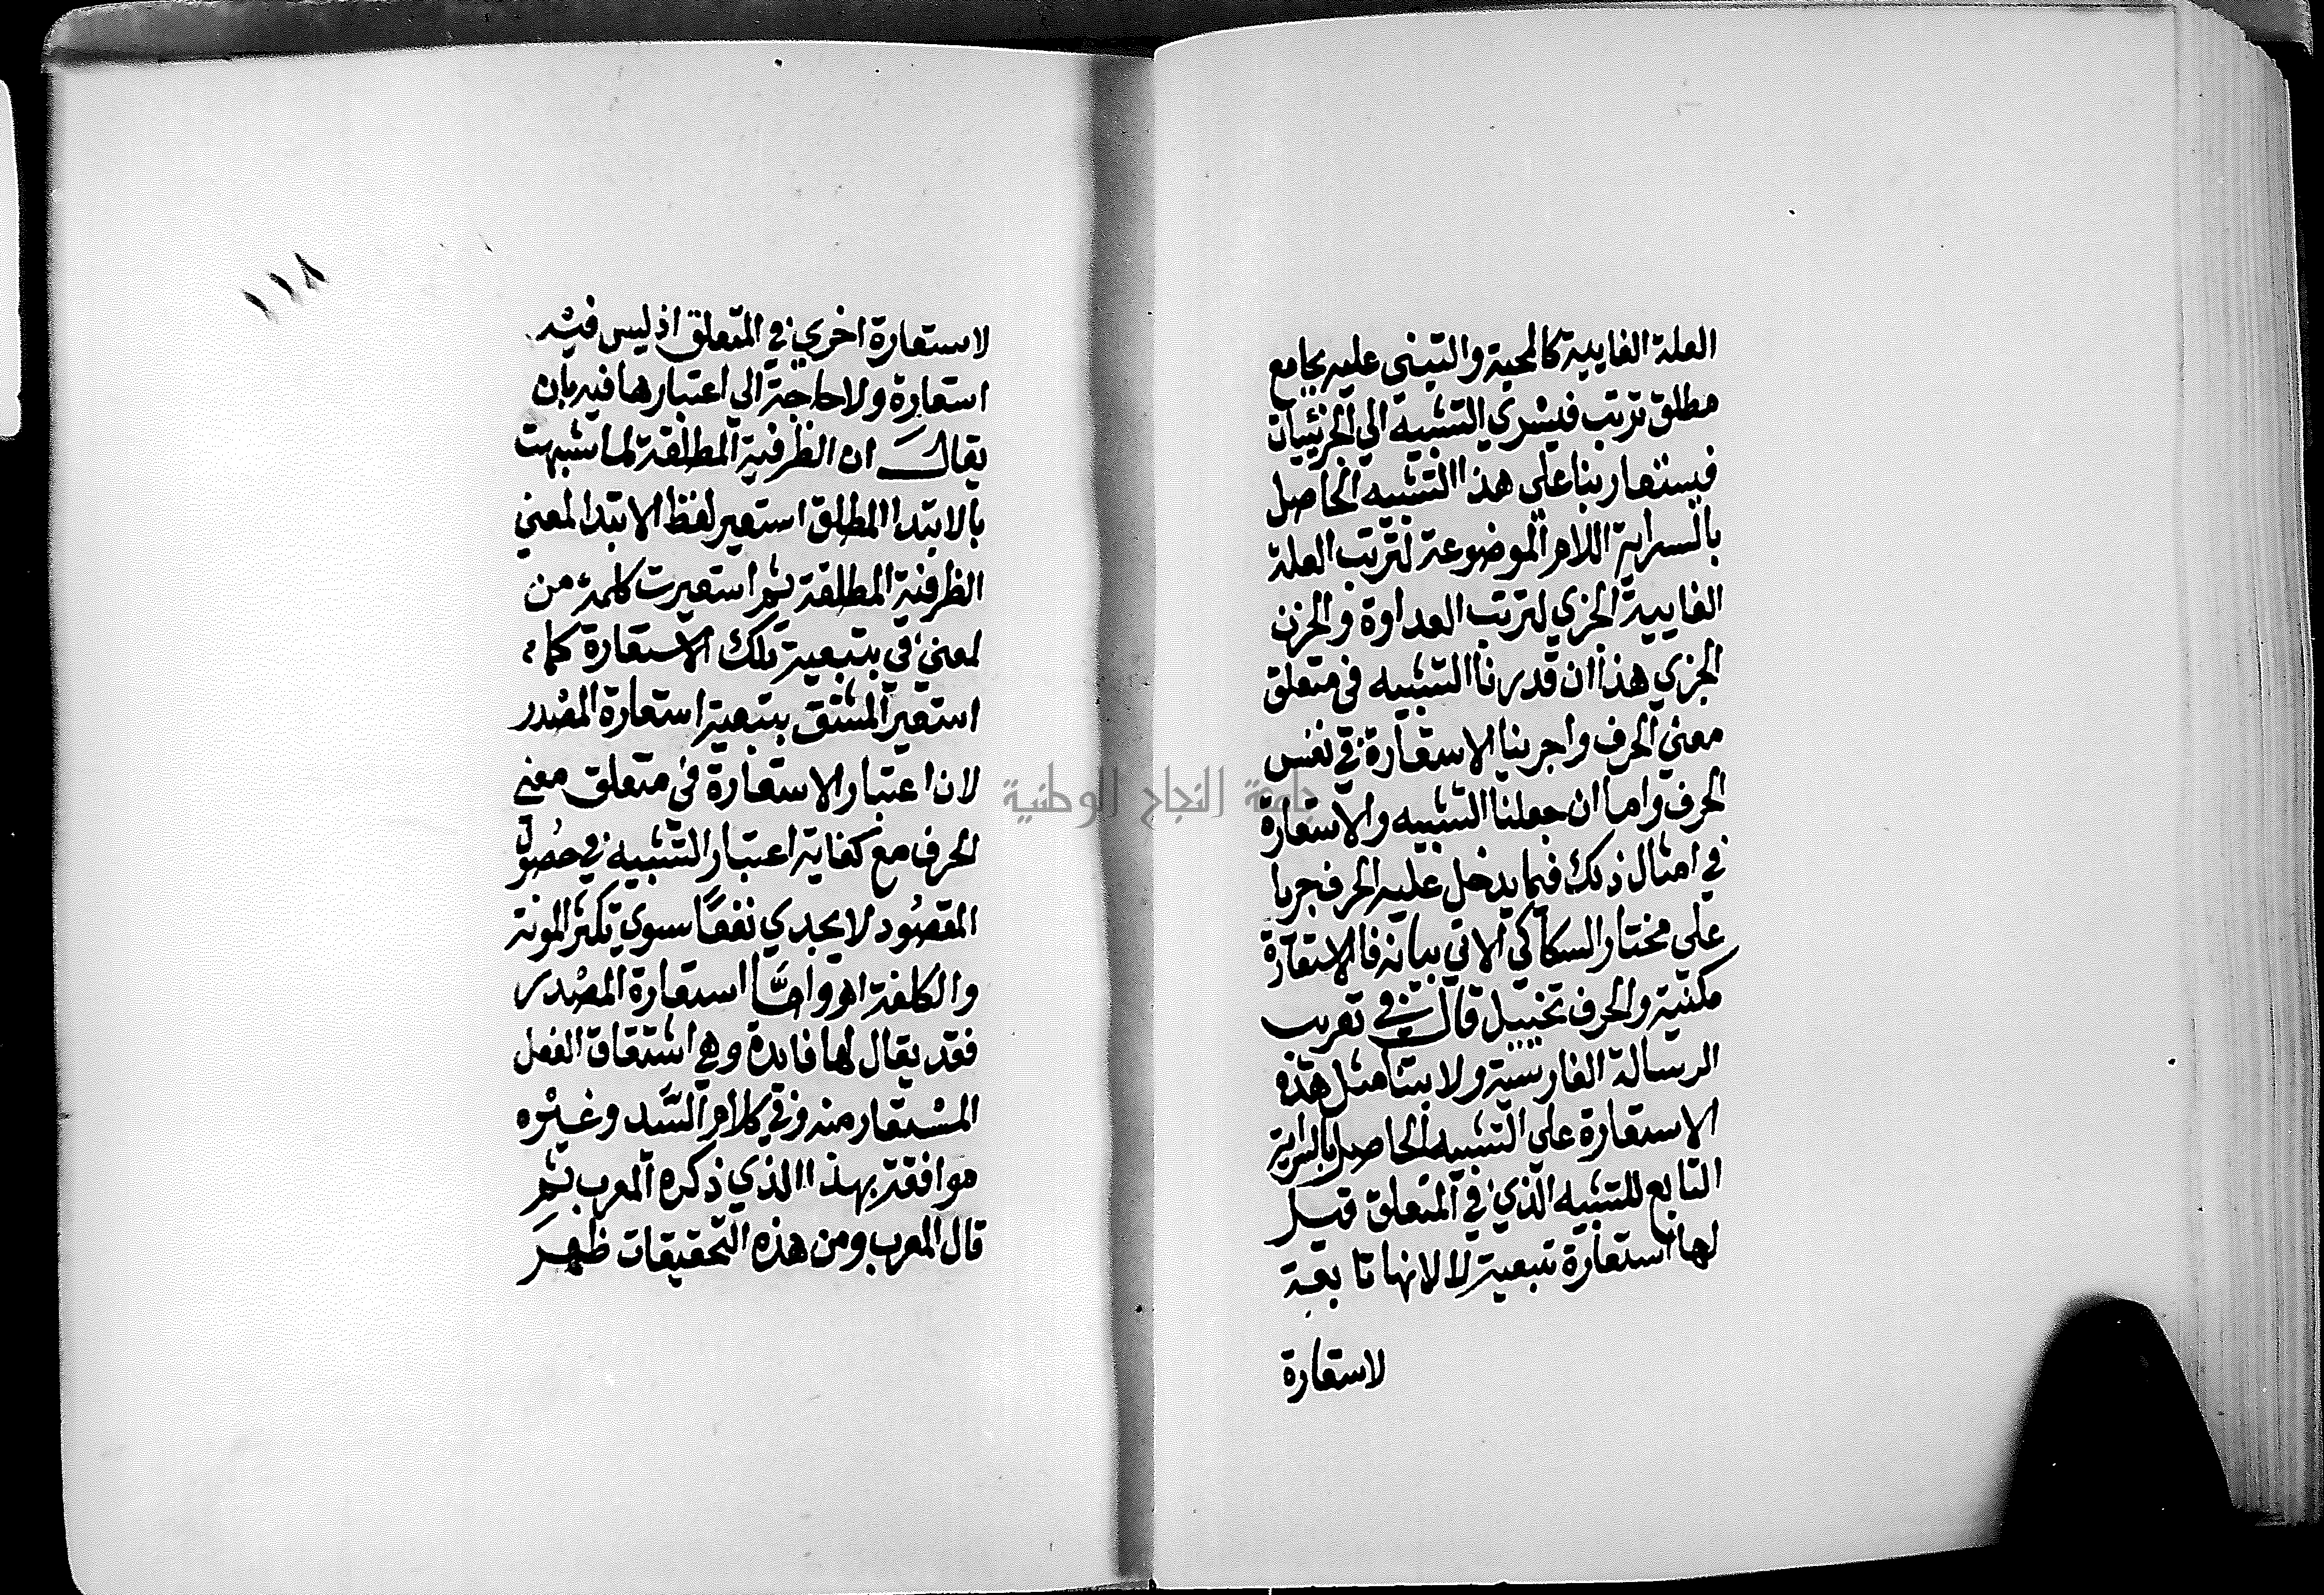 العلة الغايية كالمحبة والتبني عليه بجامع
مطلق ترتب فيسري التشبيه الي الجزئيات
فيستعار بنا علي هذا التشبيه الحاصل
بالسراية اللام الموضوعة لترتب العلة
الغايية الجزي لترتب العداوة والحزن
الجزي هذا ان قدرنا التشبيه في متعلق
معني الحرف واجرينا الاستعارة في نفس
الحرف واما ان جعلنا التشبيه والاستعارة
في امثال ذلك فيما يدخل عليه الحرف جريا
علي مختار السكاكي الاتي بيانه فالاستعارة
مكنية والحرف تخييل قال في تعريب
الرسالة الفارسية ولابتنا مثل هذه
الاستعارة علي التشبيه الحاصل بالسراية
التابع للتشبيه الذي في المتعلق قيل
لها استعارة تبعية لا لانها تابعة
لاستعارة
١١٨
لاستعارة اخري في المتعلق اذ ليس فيه
استعارة ولا حاجة الي اعتبارها فيه بان
يقال ان الظرفية المطلقة لما شبهت
بالابتدا المطلق استعير لفظ الابتدا لمعني
الظرفية المطلقة ثم استعيرت كلمة من
لمعني في بتبعية تلك الاستعارة كما
استعير المشتق بتبعية استعارة المصدر
لان اعتبار الاستعارة في متعلق معني
الحرف مع كفاية اعتبار التشبيه في حصول
المقصود لا يجدي نفعًا سوي تكثر المونة
والكلفة اهـ وامَّا استعارة المصدر
فقد يقال لها فايدة وهي اشتقاق الفعل
المستعار منه وفي كلام السَّيد وغيره
موافقة بهذا الذي ذكره المعرب ثم
قال المعرب ومن هذه التحقيقات ظهرَ
جامعة النجاح الوطنية